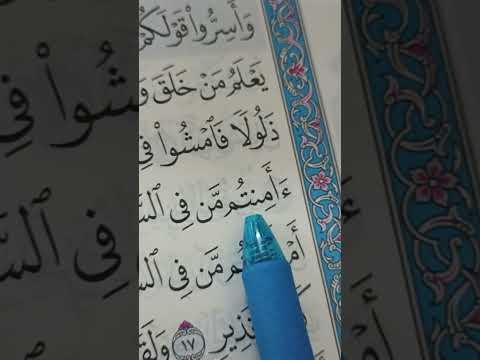 وَأَسِرُّوا۟ قَوْلَكُمْ
يَعْلَمُ مَنْ خَلَقَ وَ
ذَلُولًا فَٱمْشُوا۟ فِى
ءَأَمِنتُم مَّن فِى ٱلسَّ
أَمْ مَّن فِى ٱلسَّ
نَذِيرِ ١٧ وَلَقَ